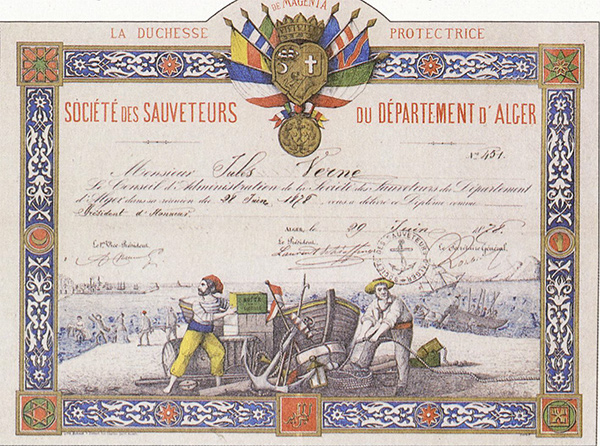 DE MAGENTA
LA DUCHESSE PROTECTRICE
SOCIÉTÉ DES SAUVETEURS DU DÉPARTEMENT D'ALGER
No 451.
Monsieur Jules Verne
Le Conseil d'Administration de la Société des Sauveteurs du Département
d'Alger dans sa réunion du Juin 1878 vous a délivré ce Diplôme comme
Président d'Honneur
ALGER, le 29 Juin 1878.
Le Vice-Président, Le Président, Le Secrétaire Général,
SAUVETEURS